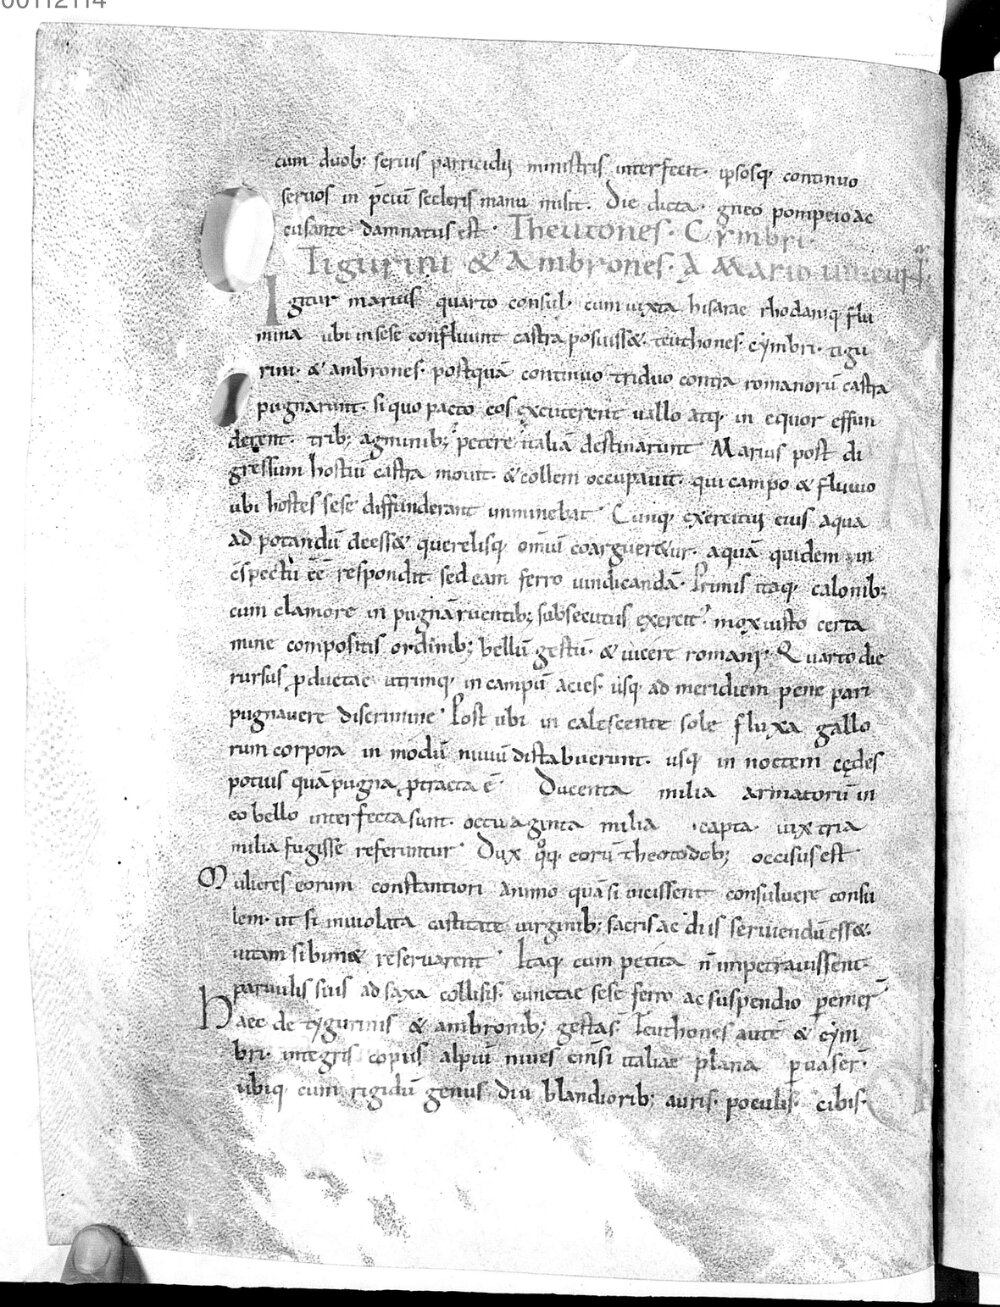 00112114
cum duob; seruis parricidii ministris interfecit· ipsosq; continuo
seruos in p̄ciū sceleris manu misit· Die dicta· gneo pompeio ac
cusante· damnatus est· Theutones· Cymbri·
Tigurini & Ambrones· A Mario uincuntur
Igitur marius quarto consul· cum iuxta hisarae rhodaniq; flu
mina ubi in sese confluunt castra posuiss&· teuthones· cymbri· tigu
rini· & ambrones· postquā continuo triduo contra romanorū castra
pugnarunt· si quo pacto eos excuterent uallo atq; in equor effun
derent· trib; agminib; petere italiā destinarunt Marius post di
gressum hostiū castra mouit· & collem occupauit· qui campo & fluuio
ubi hostes sese diffunderant imminebat· Cumq; exercitui eius aqua
ad potandū deess& querelisq; omiū coarguer&ur· aquā quidem in
cspectū eē respondit· sed eam ferro uindicandā· Primis itaq; calonib;
cum clamore in pugnā ruentib; subsecutus exercit' mox iusto certa
mine compositis ordinib; bellū gestū· & uicere romani· Quarto die
rursus pductae utrimq; in campū acies· usq; ad meridiem pene pari
pugnauere discrimine· Post ubi in calescente sole fluxa gallo
rum corpora in modū niuiū distabuerunt· usq; in noctem cędes
potius quā pugna ptracta ē· Ducenta milia armatorū in
eo bello interfecta sunt· octuaginta milia capta· uix tria
milia fugisse referuntur· Dux qq; eorū theotodob; occisus est
Mulieres eorum constantiori animo quā si uicissent consuluere consu
lem· ut si inuiolata castitate uirginib; sacris ac diis seruiendū ess&·
uitam sibim& reseruarent· Itaq; cum petita n̄ impetrauissent·
paruulis suis ad saxa collisis· cunctae sese ferro ac suspendio pemer̄
Haec de tygurinis & ambronib; gesta s̄· Teuthones autē & cym
bri· integris copiis alpiū niues emsi italiae plana puaser̄·
ubiq; cum rigidū genus diu blandiorib; auris· poculis· cibis·